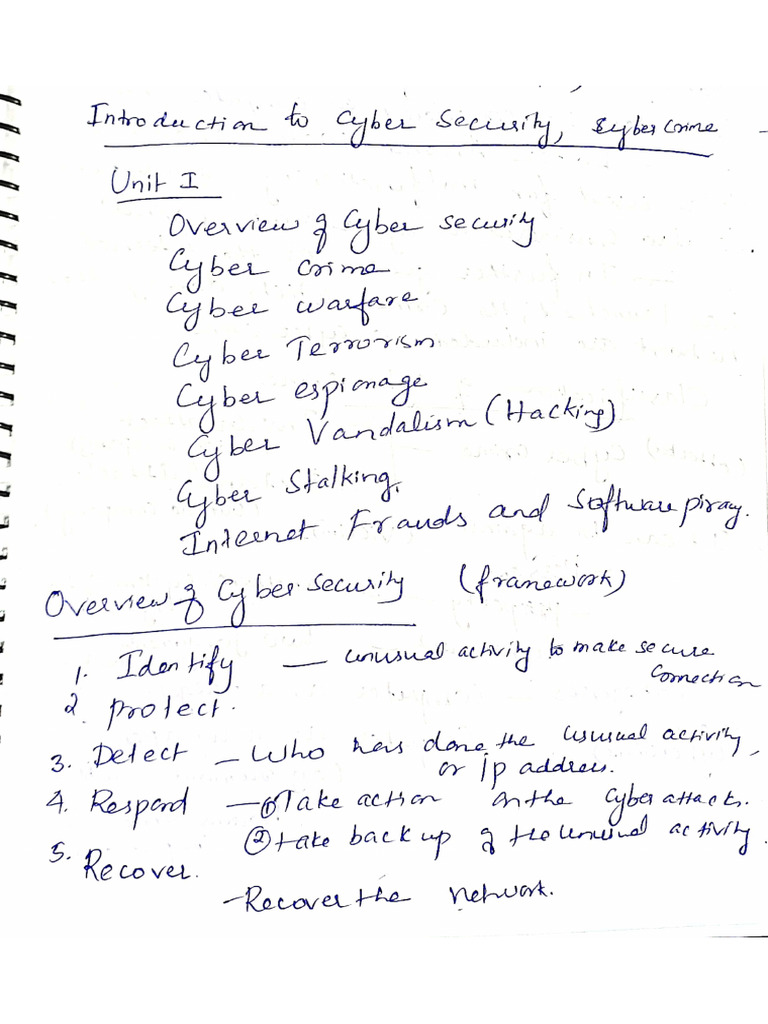 Introduction to Cyber Security, Cyber Crime
Unit I
Overview of Cyber Security
Cyber Crime
Cyber warfare
Cyber Terrorism
Cyber espionage
Cyber Vandalism (Hacking)
Cyber Stalking.
Internet Frauds and Software piracy.
Overview of Cyber Security (framework)
1. Identify — unusual activity to make secure
connection
2 protect.
3. Detect — Who has done the usual activity,
or ip address.
4. Respond — ① Take action on the Cyber attack.
② take back up of the unusual activity.
5. Recover.
- Recover the network.